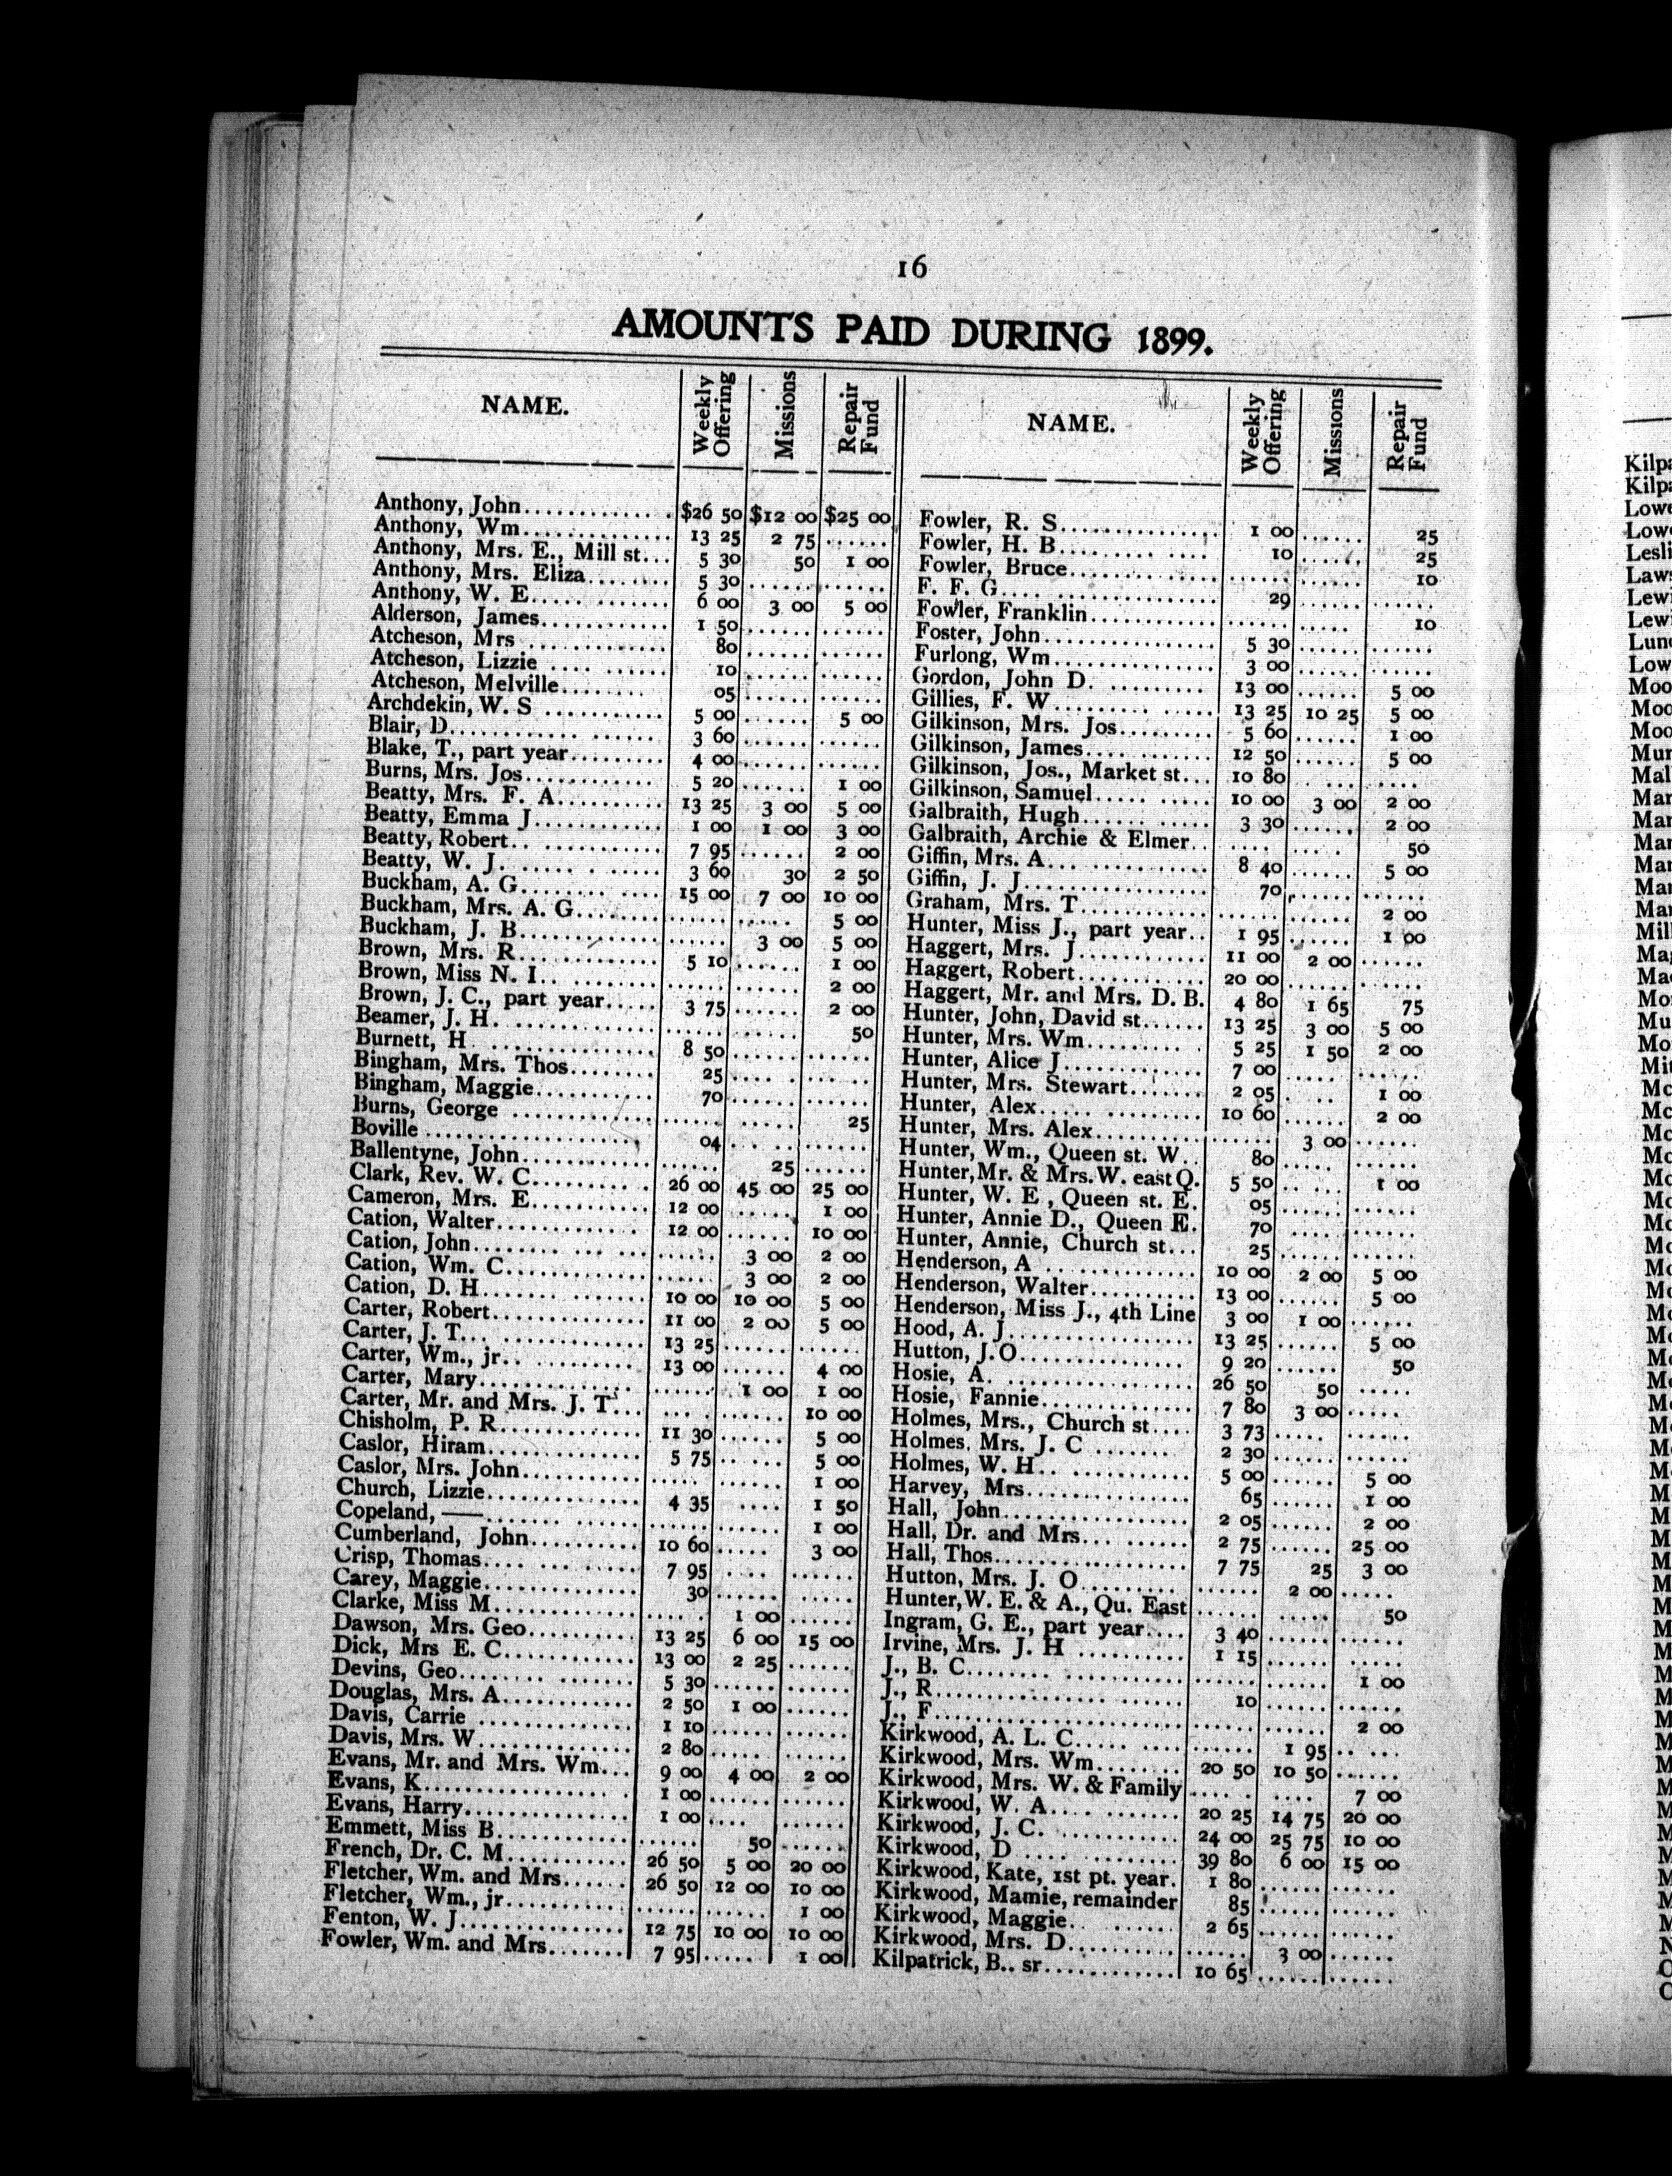 16
AMOUNTS PAID DURING 1899.
NAME. Weekly Offering Missions Repair Fund
Anthony, John $26 50 $12 00 $25 00
Anthony, Wm 13 25 2 75
Anthony, Mrs. E., Mill st 5 30 50 1 00
Anthony, Mrs. Eliza 5 30
Anthony, W. E 6 00 3 00 5 00
Alderson, James 1 50
Atcheson, Mrs 80
Atcheson, Lizzie 10
Atcheson, Melville 05
Archdekin, W. S 5 00 5 00
Blair, D 3 60
Blake, T., part year 4 00
Burns, Mrs. Jos 5 20 1 00
Beatty, Mrs. F. A 13 25 3 00 5 00
Beatty, Emma J 1 00 1 00 3 00
Beatty, Robert 7 95 2 00
Beatty, W. J. 3 60 30 2 50
Buckham, A. G 15 00 7 00 10 00
Buckham, Mrs. A. G 5 00
Buckham, J. B 3 00 5 00
Brown, Mrs. R 5 10 1 00
Brown, Miss N. I 2 00
Brown, J. C., part year 3 75 2 00
Beamer, J. H 50
Burnett, H 8 50
Bingham, Mrs. Thos 25
Bingham, Maggie 70
Burns, George 25
Boville 04
Ballentyne, John 25
Clark, Rev. W. C 26 00 45 00 25 00
Cameron, Mrs. E 12 00 1 00
Cation, Walter 12 00 10 00
Cation, John 3 00 2 00
Cation, Wm. C 3 00 2 00
Cation, D. H 10 00 10 00 5 00
Carter, Robert 11 00 2 00 5 00
Carter, J. T 13 25
Carter, Wm., jr 13 00 4 00
Carter, Mary 1 00 1 00
Carter, Mr. and Mrs. J. T 10 00
Chisholm, P. R 11 30 5 00
Caslor, Hiram 5 75 5 00
Caslor, Mrs. John 1 00
Church, Lizzie 4 35 1 50
Copeland, — 1 00
Cumberland, John 10 60 3 00
Crisp, Thomas 7 95
Carey, Maggie 30
Clarke, Miss M 1 00
Dawson, Mrs. Geo 13 25 6 00 15 00
Dick, Mrs E. C 13 00 2 25
Devins, Geo 5 30
Douglas, Mrs. A 2 50 1 00
Davis, Carrie 1 10
Davis, Mrs. W 2 80
Evans, Mr. and Mrs. Wm 9 00 4 00 2 00
Evans, K 1 00
Evans, Harry 1 00
Emmett, Miss B 50
French, Dr. C. M 26 50 5 00 20 00
Fletcher, Wm. and Mrs 26 50 12 00 10 00
Fletcher, Wm., jr 1 00
Fenton, W. J 12 75 10 00 10 00
Fowler, Wm. and Mrs 7 95 1 00
NAME. Weekly Offering Missions Repair Fund
Fowler, R. S 1 00 25
Fowler, H. B 10 25
Fowler, Bruce 10
F. F. G 29
Fowler, Franklin 10
Foster, John 5 30
Furlong, Wm 3 00
Gordon, John D. 13 00 5 00
Gillies, F. W 13 25 10 25 5 00
Gilkinson, Mrs. Jos 5 60 1 00
Gilkinson, James 12 50 5 00
Gilkinson, Jos., Market st 10 80
Gilkinson, Samuel 10 00 3 00 2 00
Galbraith, Hugh 3 30 2 00
Galbraith, Archie & Elmer 50
Giffin, Mrs. A 8 40 5 00
Giffin, J. J 70
Graham, Mrs. T 2 00
Hunter, Miss J., part year 1 95 1 00
Haggert, Mrs. J 11 00 2 00
Haggert, Robert 20 00
Haggert, Mr. and Mrs. D. B. 4 80 1 65 75
Hunter, John, David st 13 25 3 00 5 00
Hunter, Mrs. Wm 5 25 1 50 2 00
Hunter, Alice J 7 00
Hunter, Mrs. Stewart 2 05 1 00
Hunter, Alex 10 60 2 00
Hunter, Mrs. Alex 3 00
Hunter, Wm., Queen st. W 80
Hunter, Mr. & Mrs. W. east Q. 5 50 1 00
Hunter, W. E , Queen st. E. 05
Hunter, Annie D., Queen E. 70
Hunter, Annie, Church st 25
Henderson, A 10 00 2 00 5 00
Henderson, Walter 13 00 5 00
Henderson, Miss J., 4th Line 3 00 1 00
Hood, A. J 13 25 5 00
Hutton, J. O 9 20 50
Hosie, A. 26 50 50
Hosie, Fannie 7 80 3 00
Holmes, Mrs., Church st 3 73
Holmes, Mrs. J. C 2 30
Holmes, W. H 5 00 5 00
Harvey, Mrs 65 1 00
Hall, John 2 05 2 00
Hall, Dr. and Mrs 2 75 25 00
Hall, Thos 7 75 25 3 00
Hutton, Mrs. J. O 2 00
Hunter, W. E. & A., Qu. East 50
Ingram, G. E., part year 3 40
Irvine, Mrs. J. H 1 15
J., B. C 1 00
J., R 10
J., F 2 00
Kirkwood, A. L. C 1 95
Kirkwood, Mrs. Wm 20 50 10 50
Kirkwood, Mrs. W. & Family 7 00
Kirkwood, W. A 20 25 14 75 20 00
Kirkwood, J. C. 24 00 25 75 10 00
Kirkwood, D 39 80 6 00 15 00
Kirkwood, Kate, 1st pt. year. 1 80
Kirkwood, Mamie, remainder 85
Kirkwood, Maggie 2 65
Kirkwood, Mrs. D 3 00
Kilpatrick, B.. sr 10 65